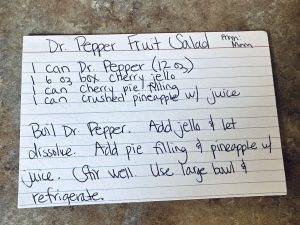 Dr. Pepper Fruit Salad From: Mom
1 can Dr. Pepper (12 oz)
1 6 oz box cherry jello
1 can Cherry pie filling
1 can crushed pineapple w/ juice
Boil Dr. Pepper. Add jello & let
dissolve. Add pie filling & pineapple w/
juice. Stir well. Use large bowl &
refrigerate.